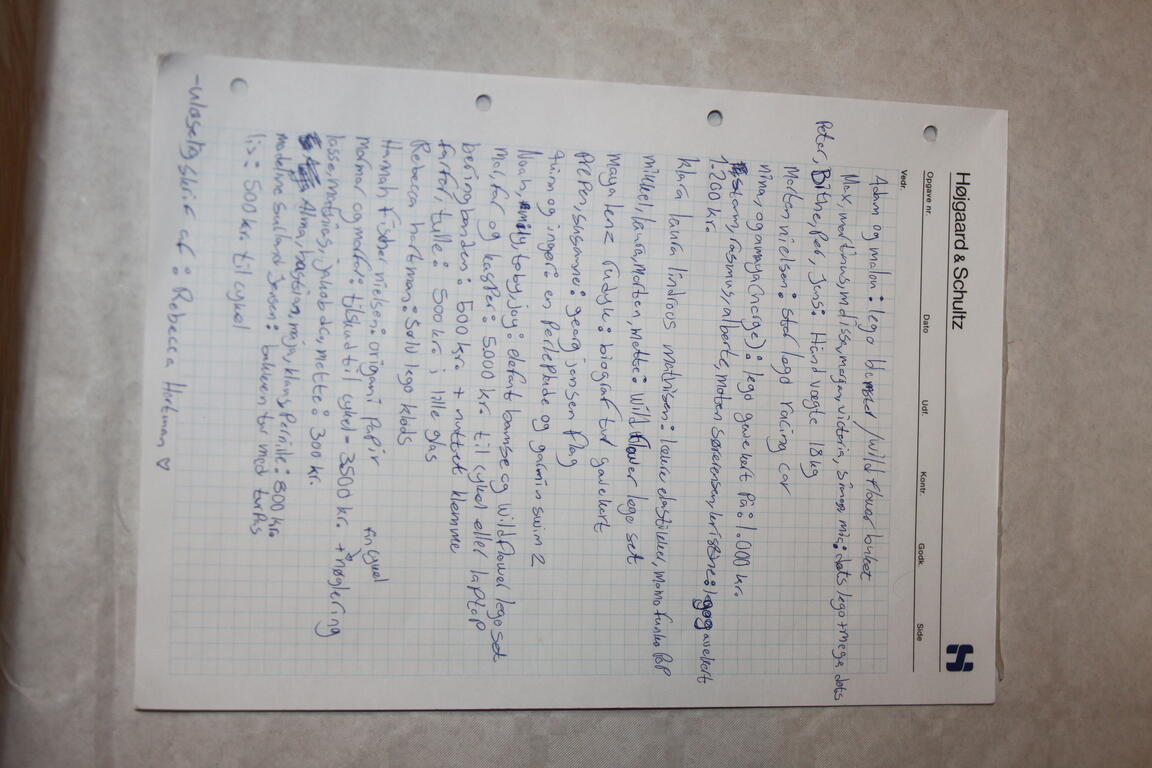 Højgaard & Schultz
Opgave nr. Dato Udf. Kontr. Godk. Side
Vedr.
Adam og malon: lego bumster/wildflower buket
Max, martinus, melissa, megan, victoria, mic: dots lego + mega dots
Peter, Bithe, per, jens: Håndvægte 18kg
Morten nielsen: stor lego racing car
nima, og annaya (norge): lego gavekort på: 1.000 kr.
rasmus, alberte, morten sørensen, kristine: lego gavekort
1.200 kr.
klara laura lindroos mathisen: løkke elastikker, momo funko pop
mikkel, laura, morten, mette: Wildflower lego set
Maya lenz rudyk: biograf tur gavekort
pepen, susanne: georg jensen flag
quim og inger: en perleplade og garmin swim 2
Noah, emily, toby, joy: elefant bamse og wildflower lego set
mor, far og kasper: 5.000 kr. til cykel eller laptop
beringbanden: 500 kr. + nuttet klemme
farfar, tulle: 500 kr., lille glas
Rebecca hartman: Sølv lego klods
Hannah fischer nielsen: origami papir
mormor og morfar: tilskud til cykel = 3500 kr. + fin gul nøglering
lasse, mathias, jakob da, mette: 300 kr.
Alma, bastian, maja, klaus, pernille: 800 kr.
madeline sulland jensen: bakken tur med turpas
lis: 500 kr. til cykel
Rebecca Hartman ♡